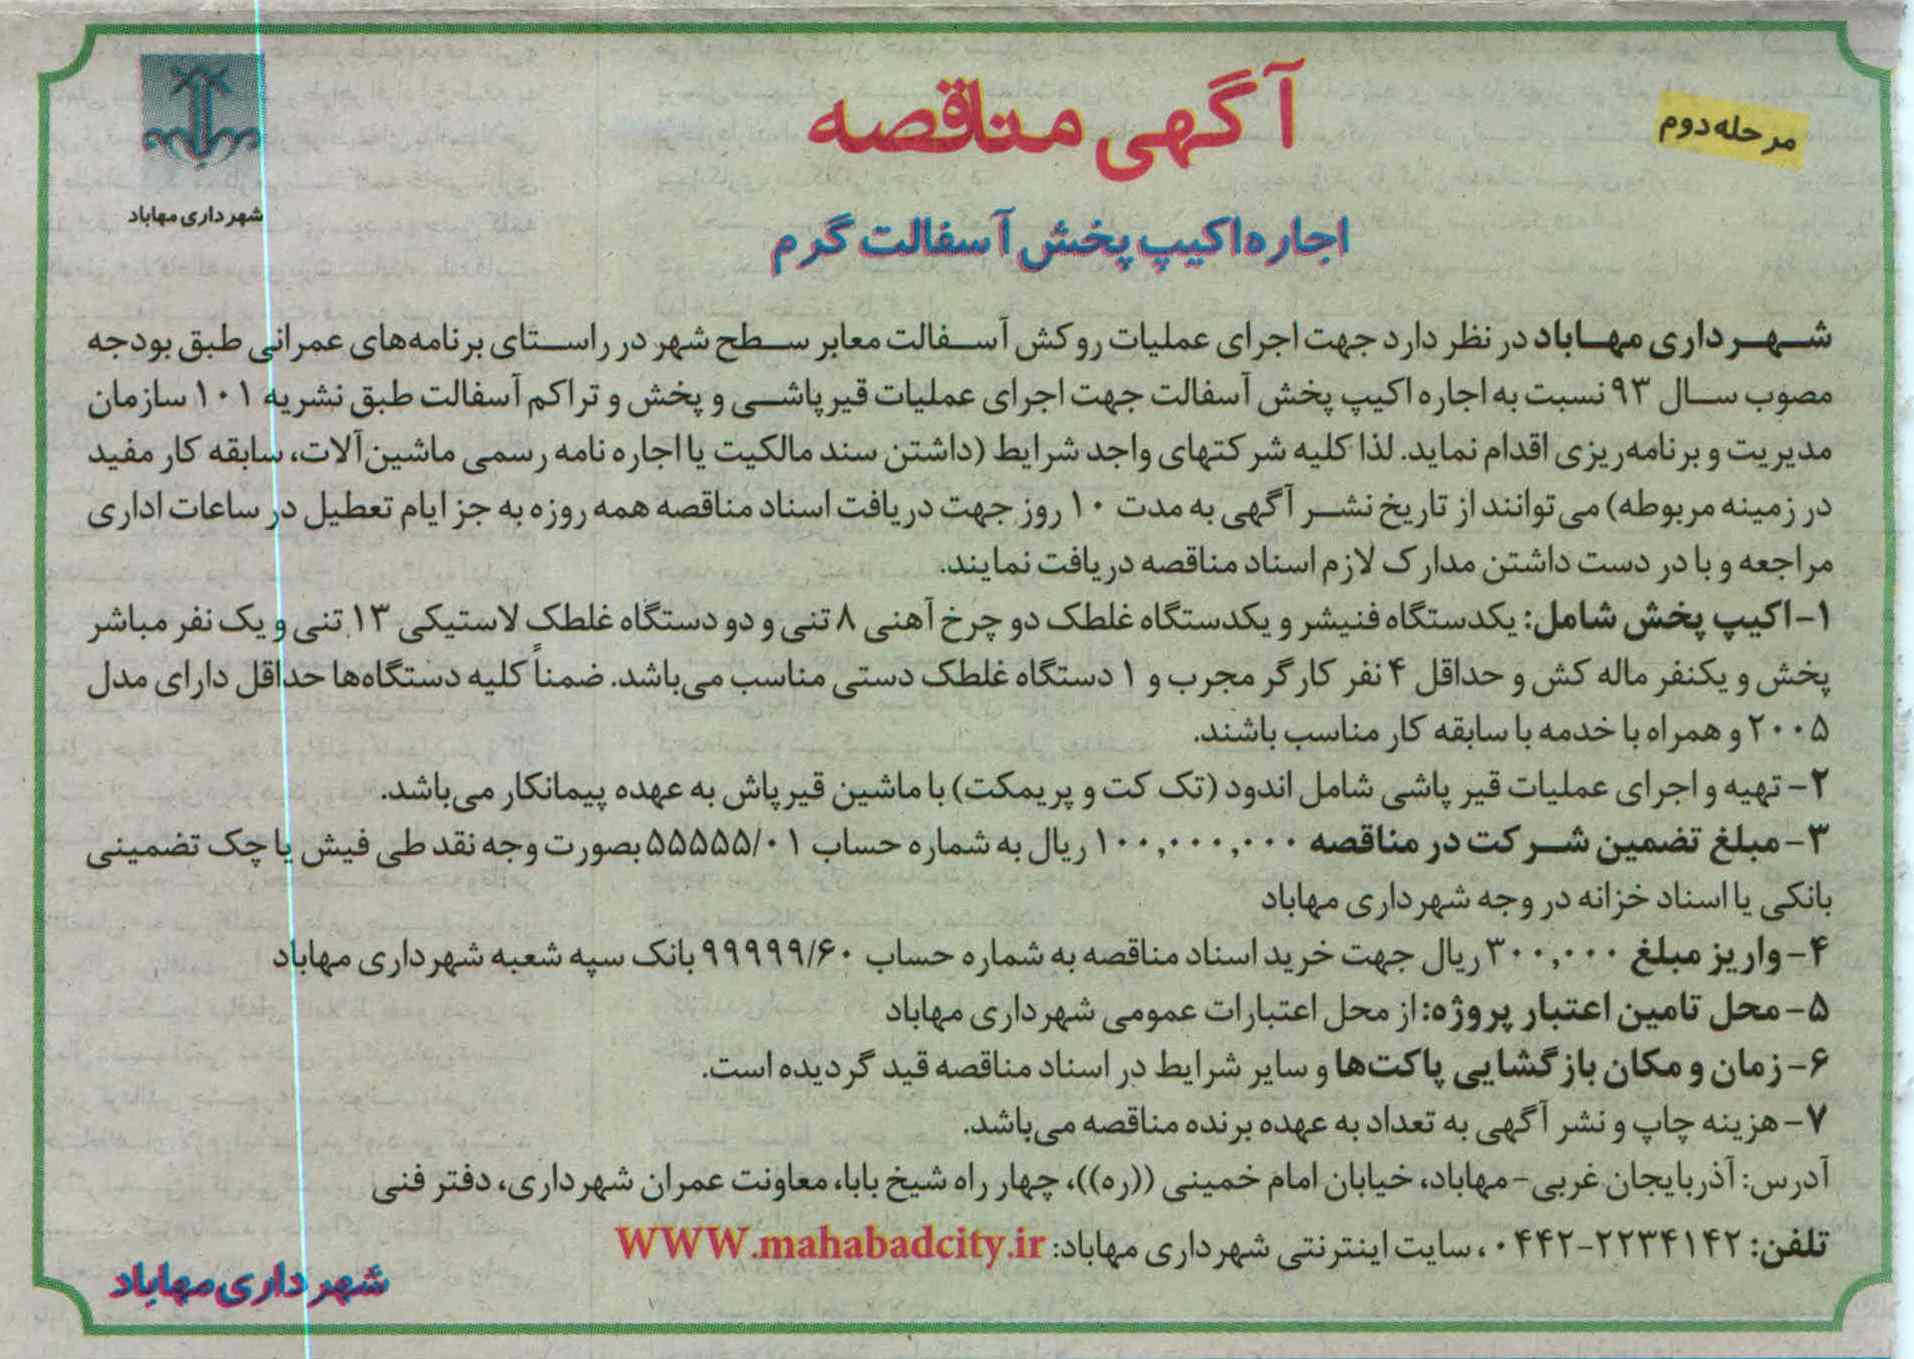 مرحله دوم
آگهی مناقصه
شهرداری مهاباد
اجاره اکیپ پخش آسفالت گرم
شهرداری مهاباد در نظر دارد جهت اجرای عملیات روکش آسفالت معابر سطح شهر در راستای برنامه‌های عمرانی طبق بودجه
مصوب سال ۹۳ نسبت به اجاره اکیپ پخش آسفالت جهت اجرای عملیات قیرپاشی و پخش و تراکم آسفالت طبق نشریه ۱۰۱ سازمان
مدیریت و برنامه‌ریزی اقدام نماید. لذا کلیه شرکتهای واجد شرایط (داشتن سند مالکیت یا اجاره نامه رسمی ماشین‌آلات، سابقه کار مفید
در زمینه مربوطه) می‌توانند از تاریخ نشر آگهی به مدت ۱۰ روز جهت دریافت اسناد مناقصه همه روزه به جز ایام تعطیل در ساعات اداری
مراجعه و با در دست داشتن مدارک لازم اسناد مناقصه دریافت نمایند.
۱-اکیپ پخش شامل: یکدستگاه فنیشر و یکدستگاه غلطک دو چرخ آهنی ۸ تنی و دو دستگاه غلطک لاستیکی ۱۳ تنی و یک نفر مباشر
پخش و یکنفر ماله کش و حداقل ۴ نفر کارگر مجرب و ۱ دستگاه غلطک دستی مناسب می‌باشد. ضمناً کلیه دستگاه‌ها حداقل دارای مدل
۲۰۰۵ و همراه با خدمه با سابقه کار مناسب باشند.
۲- تهیه و اجرای عملیات قیر پاشی شامل اندود (تک کت و پریمکت) با ماشین قیرپاش به عهده پیمانکار می‌باشد.
۳- مبلغ تضمین شرکت در مناقصه ۱۰۰,۰۰۰,۰۰۰ ریال به شماره حساب ۵۵۵۵۵/۰۱ بصورت وجه نقد طی فیش یا چک تضمینی
بانکی یا اسناد خزانه در وجه شهرداری مهاباد
۴- واریز مبلغ ۳۰۰,۰۰۰ ریال جهت خرید اسناد مناقصه به شماره حساب ۹۹۹۹۹/۶۰ بانک سپه شعبه شهرداری مهاباد
۵- محل تامین اعتبار پروژه: از محل اعتبارات عمومی شهرداری مهاباد
۶- زمان و مکان بازگشایی پاکت‌ها و سایر شرایط در اسناد مناقصه قید گردیده است.
۷- هزینه چاپ و نشر آگهی به تعداد به عهده برنده مناقصه می‌باشد.
آدرس: آذربایجان غربی-مهاباد، خیابان امام خمینی ((ره))، چهار راه شیخ بابا، معاونت عمران شهرداری، دفتر فنی
تلفن: ۲۲۳۴۱۴۲-۰۴۴۲، سایت اینترنتی شهرداری مهاباد: WWW.mahabadcity.ir
شهرداری مهاباد